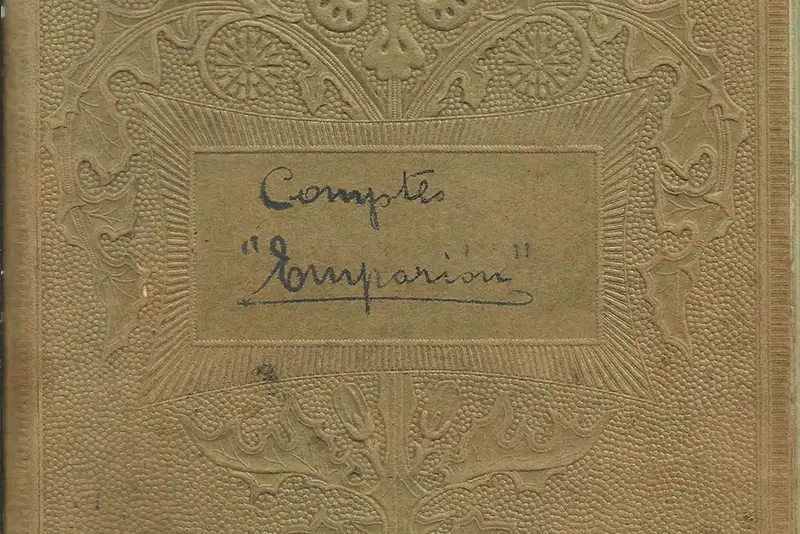 Comptes
"Emparion"